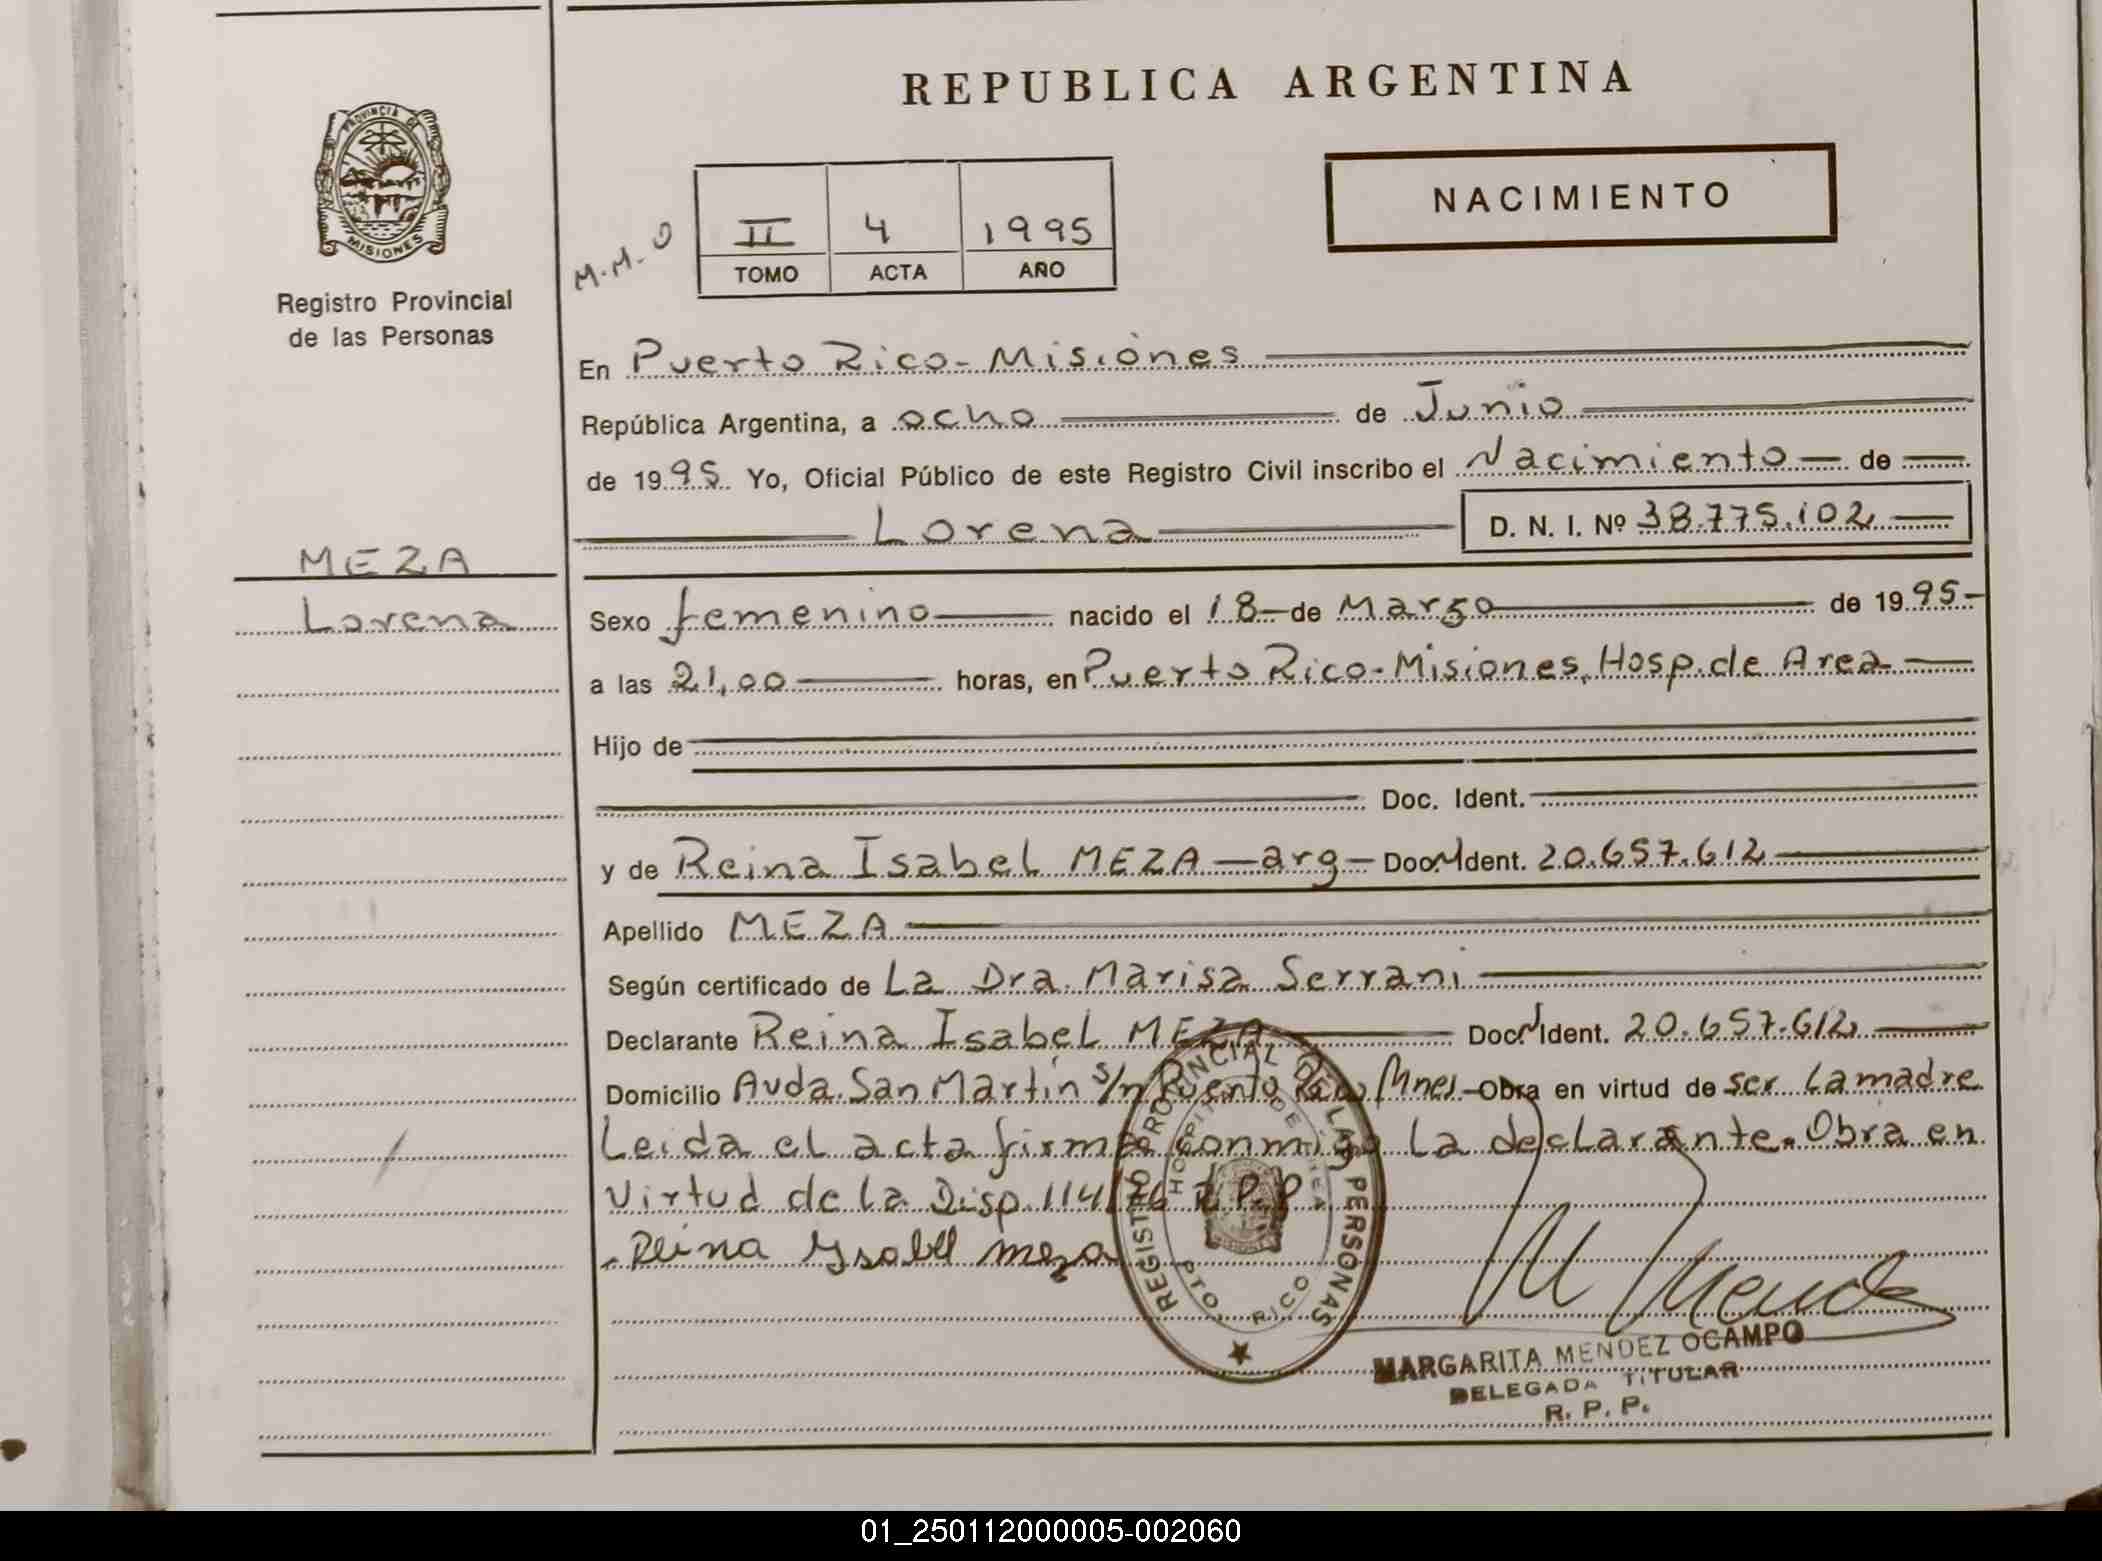 REPUBLICA ARGENTINA
PROVINCIA DE MISIONES
Registro Provincial
de las Personas
M.M.O
II 4 1995
TOMO ACTA AÑO
NACIMIENTO
En Puerto Rico - Misiones
República Argentina, a ocho de Junio
de 1995 Yo, Oficial Público de este Registro Civil inscribo el Nacimiento de
Lorena D. N. I. Nº 38.775.102
MEZA
Lorena
Sexo femenino nacido el 18 de Marzo de 1995
a las 21,00 horas, en Puerto Rico - Misiones, Hosp. de Area
Hijo de
Doc. Ident.
y de Reina Isabel MEZA - arg - Doc. Ident. 20.657.612
Apellido MEZA
Según certificado de La Dra. Marisa Serrani
Declarante Reina Isabel MEZA Doc. Ident. 20.657.612
Domicilio Avda. San Martín s/n Puerto Rico Mnes - Obra en virtud de ser la madre
Leida el acta firma conmigo la declarante. Obra en
virtud de la Disp. 114/76 R.P.P
Reina Ysabel meza
REGISTRO PROVINCIAL DE LAS PERSONAS
HOSPITAL DE AREA
PTO. RICO
MARGARITA MENDEZ OCAMPO
DELEGADA TITULAR
R. P. P.
01_250112000005-002060